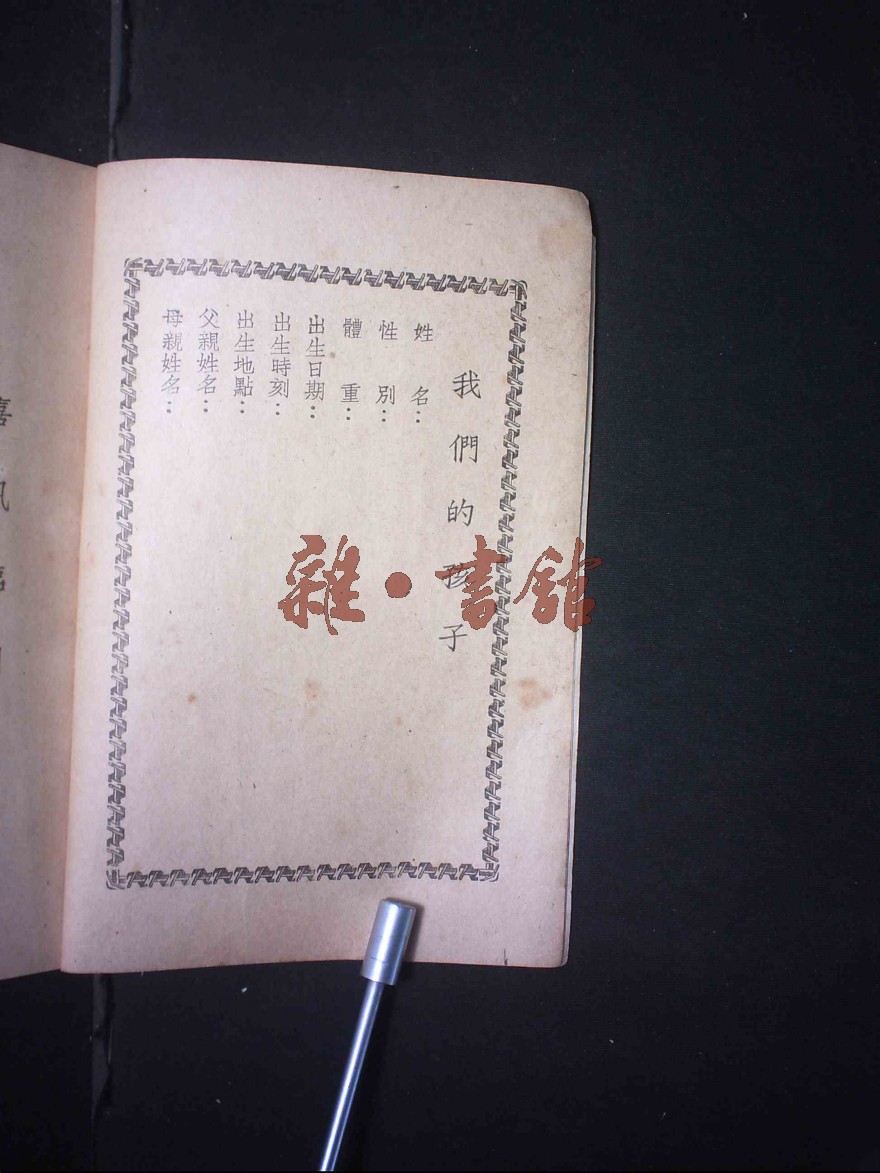 我們的孩子
姓名：
性別：
體重：
出生日期：
出生時刻：
出生地點：
父親姓名：
母親姓名：
雜・書館